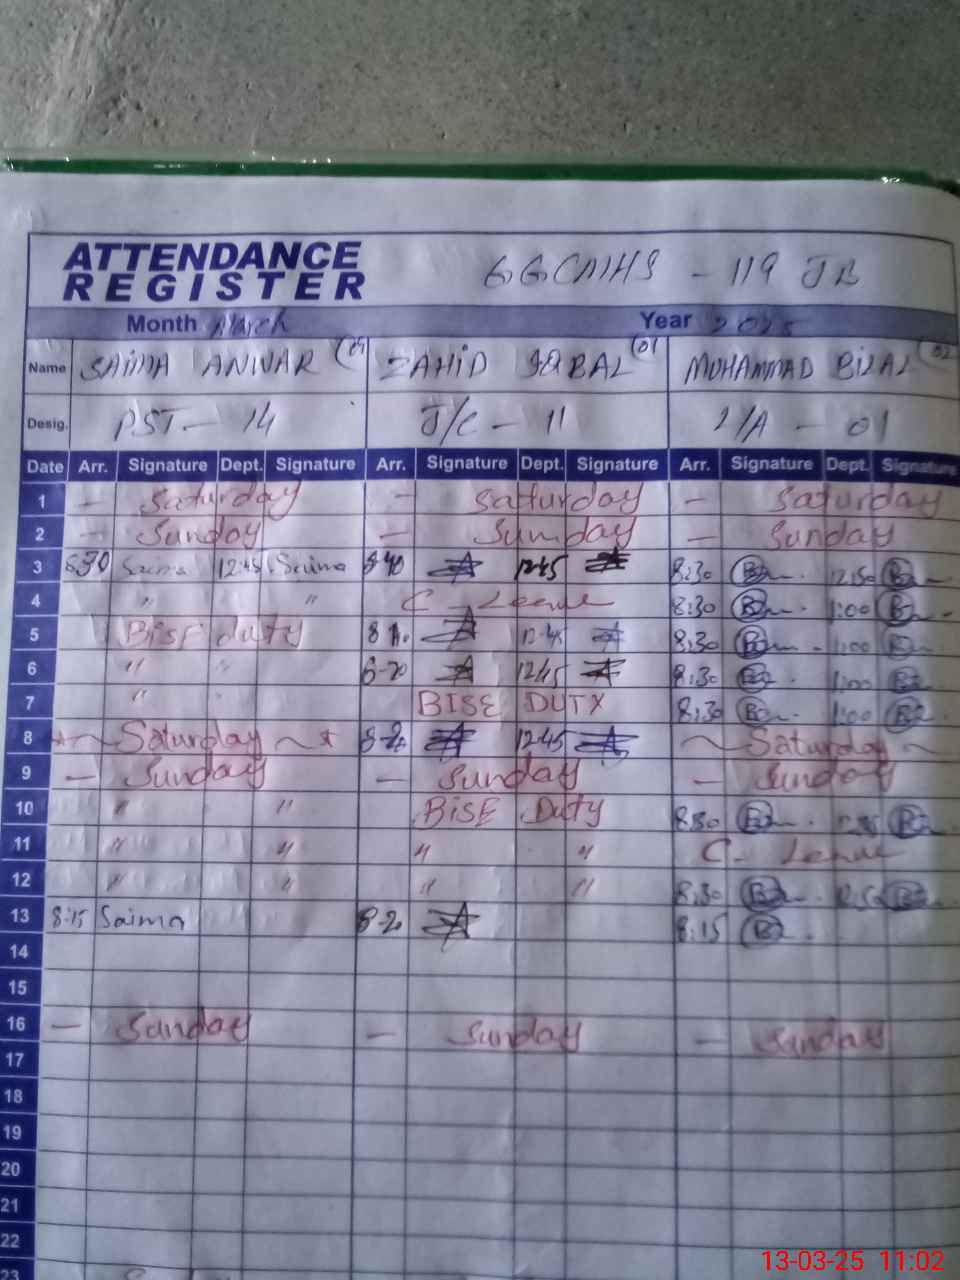 ATTENDANCE
REGISTER
GGCMHS - 119 JB
Month March Year 2025
Name SAIMA ANWAR ZAHID IQBAL (01 MUHAMMAD BILAL (02
Desig. PST - 14 J/C - 11 - 01
Date Arr. Signature Dept. Signature Arr. Signature Dept. Signature Arr. Signature Dept. Signature
1 - Saturday - Saturday - Saturday
2 - Sunday - Sunday - Sunday
3 8:30 Saima 12:45 Saima 8-40 12-45 8:30 12:50
4 " " C - Leave 8:30 1:00
5 BISE duty 12-45 8:30 1:00
6 " " 8-20 12:45 8:30 1:00
7 " " BISE DUTY 8:30 1:00
8 Saturday 12-45 Saturday
9 - Sunday - Sunday - Sunday
10 " " BISE Duty 8:30
11 " " " " C - Leave
12 " " " " 8:30 12:50
13 8:15 Saima 8-20 8:15
14
15
16 - Sunday - Sunday - Sunday
17
18
19
20
21
22
23
13-03-25 11:02